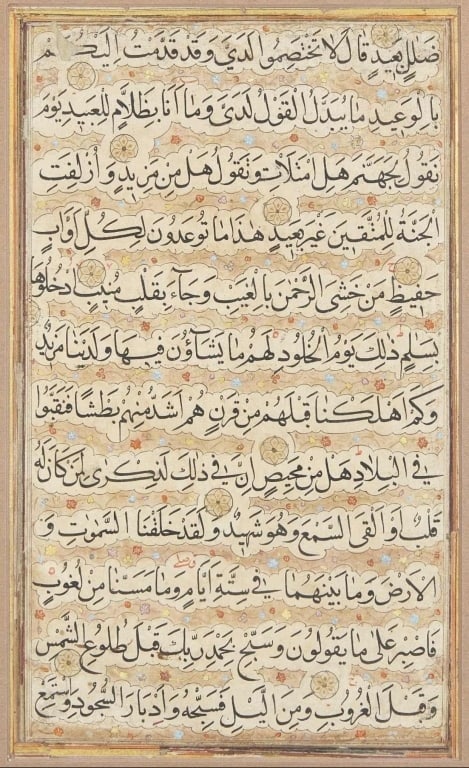 ضَلٰلٍ بَعِيدٍ قَالَ لَا تَخْتَصِمُوا لَدَيَّ وَقَدْ قَدَّمْتُ اِلَيْكُمْ
بِالْوَعِيدِ مَا يُبَدَّلُ الْقَوْلُ لَدَيَّ وَمَا اَنَا بِظَلَّامٍ لِلْعَبِيدِ يَوْمَ
نَقُولُ لِجَهَنَّمَ هَلِ امْتَلَأْتِ وَتَقُولُ هَلْ مِنْ مَزِيدٍ وَاُزْلِفَتِ
الْجَنَّةُ لِلْمُتَّقِينَ غَيْرَ بَعِيدٍ هٰذَا مَا تُوعَدُونَ لِكُلِّ اَوَّابٍ
حَفِيظٍ مَنْ خَشِيَ الرَّحْمٰنَ بِالْغَيْبِ وَجَآءَ بِقَلْبٍ مُنِيبٍ ادْخُلُوهَا
بِسَلٰمٍ ذٰلِكَ يَوْمُ الْخُلُودِ لَهُمْ مَا يَشَآؤُنَ فِيهَا وَلَدَيْنَا مَزِيدٌ
وَكَمْ اَهْلَكْنَا قَبْلَهُمْ مِنْ قَرْنٍ هُمْ اَشَدُّ مِنْهُمْ بَطْشًا فَنَقَّبُوا
فِي الْبِلَادِ هَلْ مِنْ مَحِيصٍ اِنَّ فِي ذٰلِكَ لَذِكْرٰى لِمَنْ كَانَ لَهُ
قَلْبٌ اَوْ اَلْقَى السَّمْعَ وَهُوَ شَهِيدٌ وَلَقَدْ خَلَقْنَا السَّمٰوٰتِ وَ
الْاَرْضَ وَمَا بَيْنَهُمَا فِي سِتَّةِ اَيَّامٍ وَمَا مَسَّنَا مِنْ لُغُوبٍ
فَاصْبِرْ عَلٰى مَا يَقُولُونَ وَسَبِّحْ بِحَمْدِ رَبِّكَ قَبْلَ طُلُوعِ الشَّمْسِ
وَقَبْلَ الْغُرُوبِ وَمِنَ الَّيْلِ فَسَبِّحْهُ وَاَدْبَارَ السُّجُودِ وَاسْتَمِعْ